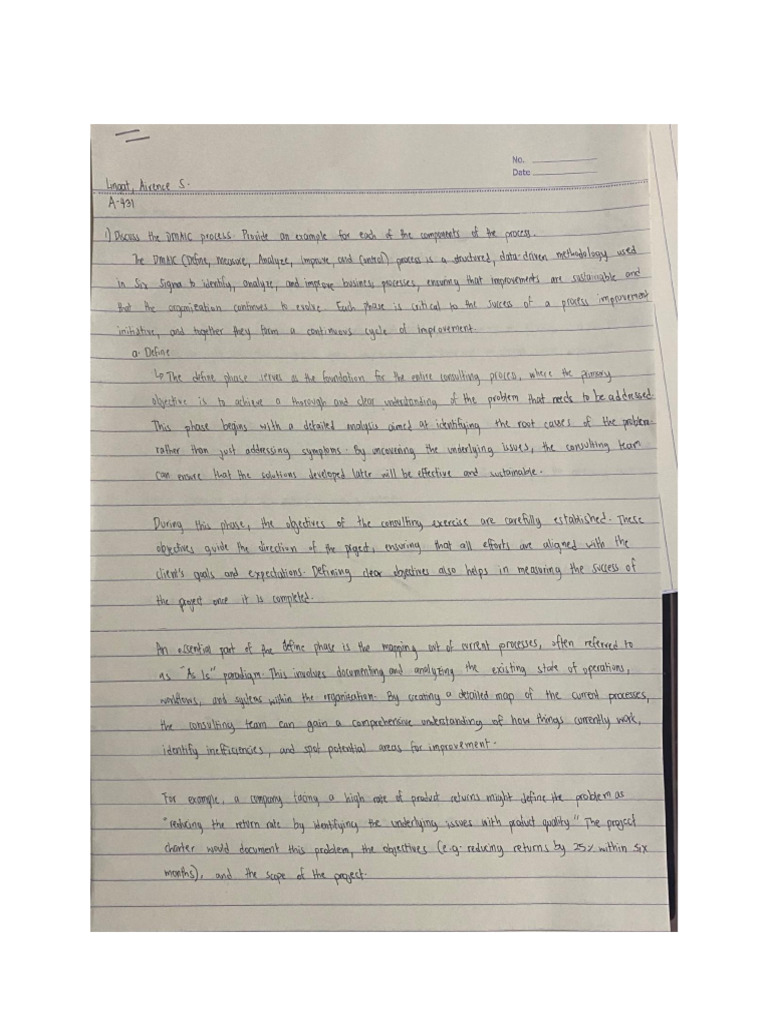 No.
Date
Lingat, Airence S.
A-431
1) Discuss the DMAIC process. Provide an example for each of the components of the process.
The DMAIC (Define, Measure, Analyze, Improve, and Control) process is a structured, data-driven methodology used
in Six Sigma to identify, analyze, and improve business processes, ensuring that improvements are sustainable and
that the organization continues to evolve. Each phase is critical to the success of a process improvement
initiative, and together they form a continuous cycle of improvement.
a. Define
↳ The define phase serves as the foundation for the entire consulting process, where the primary
objective is to achieve a thorough and clear understanding of the problem that needs to be addressed.
This phase begins with a detailed analysis aimed at identifying the root causes of the problem
rather than just addressing symptoms. By uncovering the underlying issues, the consulting team
can ensure that the solutions developed later will be effective and sustainable.
During this phase, the objectives of the consulting exercise are carefully established. These
objectives guide the direction of the project, ensuring that all efforts are aligned with the
client's goals and expectations. Defining clear objectives also helps in measuring the success of
the project once it is completed.
An essential part of the define phase is the mapping out of current processes, often referred to
as "As Is" paradigm. This involves documenting and analyzing the existing state of operations,
workflows, and systems within the organization. By creating a detailed map of the current processes,
the consulting team can gain a comprehensive understanding of how things currently work,
identify inefficiencies, and spot potential areas for improvement.
For example, a company facing a high rate of product returns might define the problem as
"reducing the return rate by identifying the underlying issues with product quality." The project
charter would document this problem, the objectives (e.g. reducing returns by 25% within six
months), and the scope of the project.